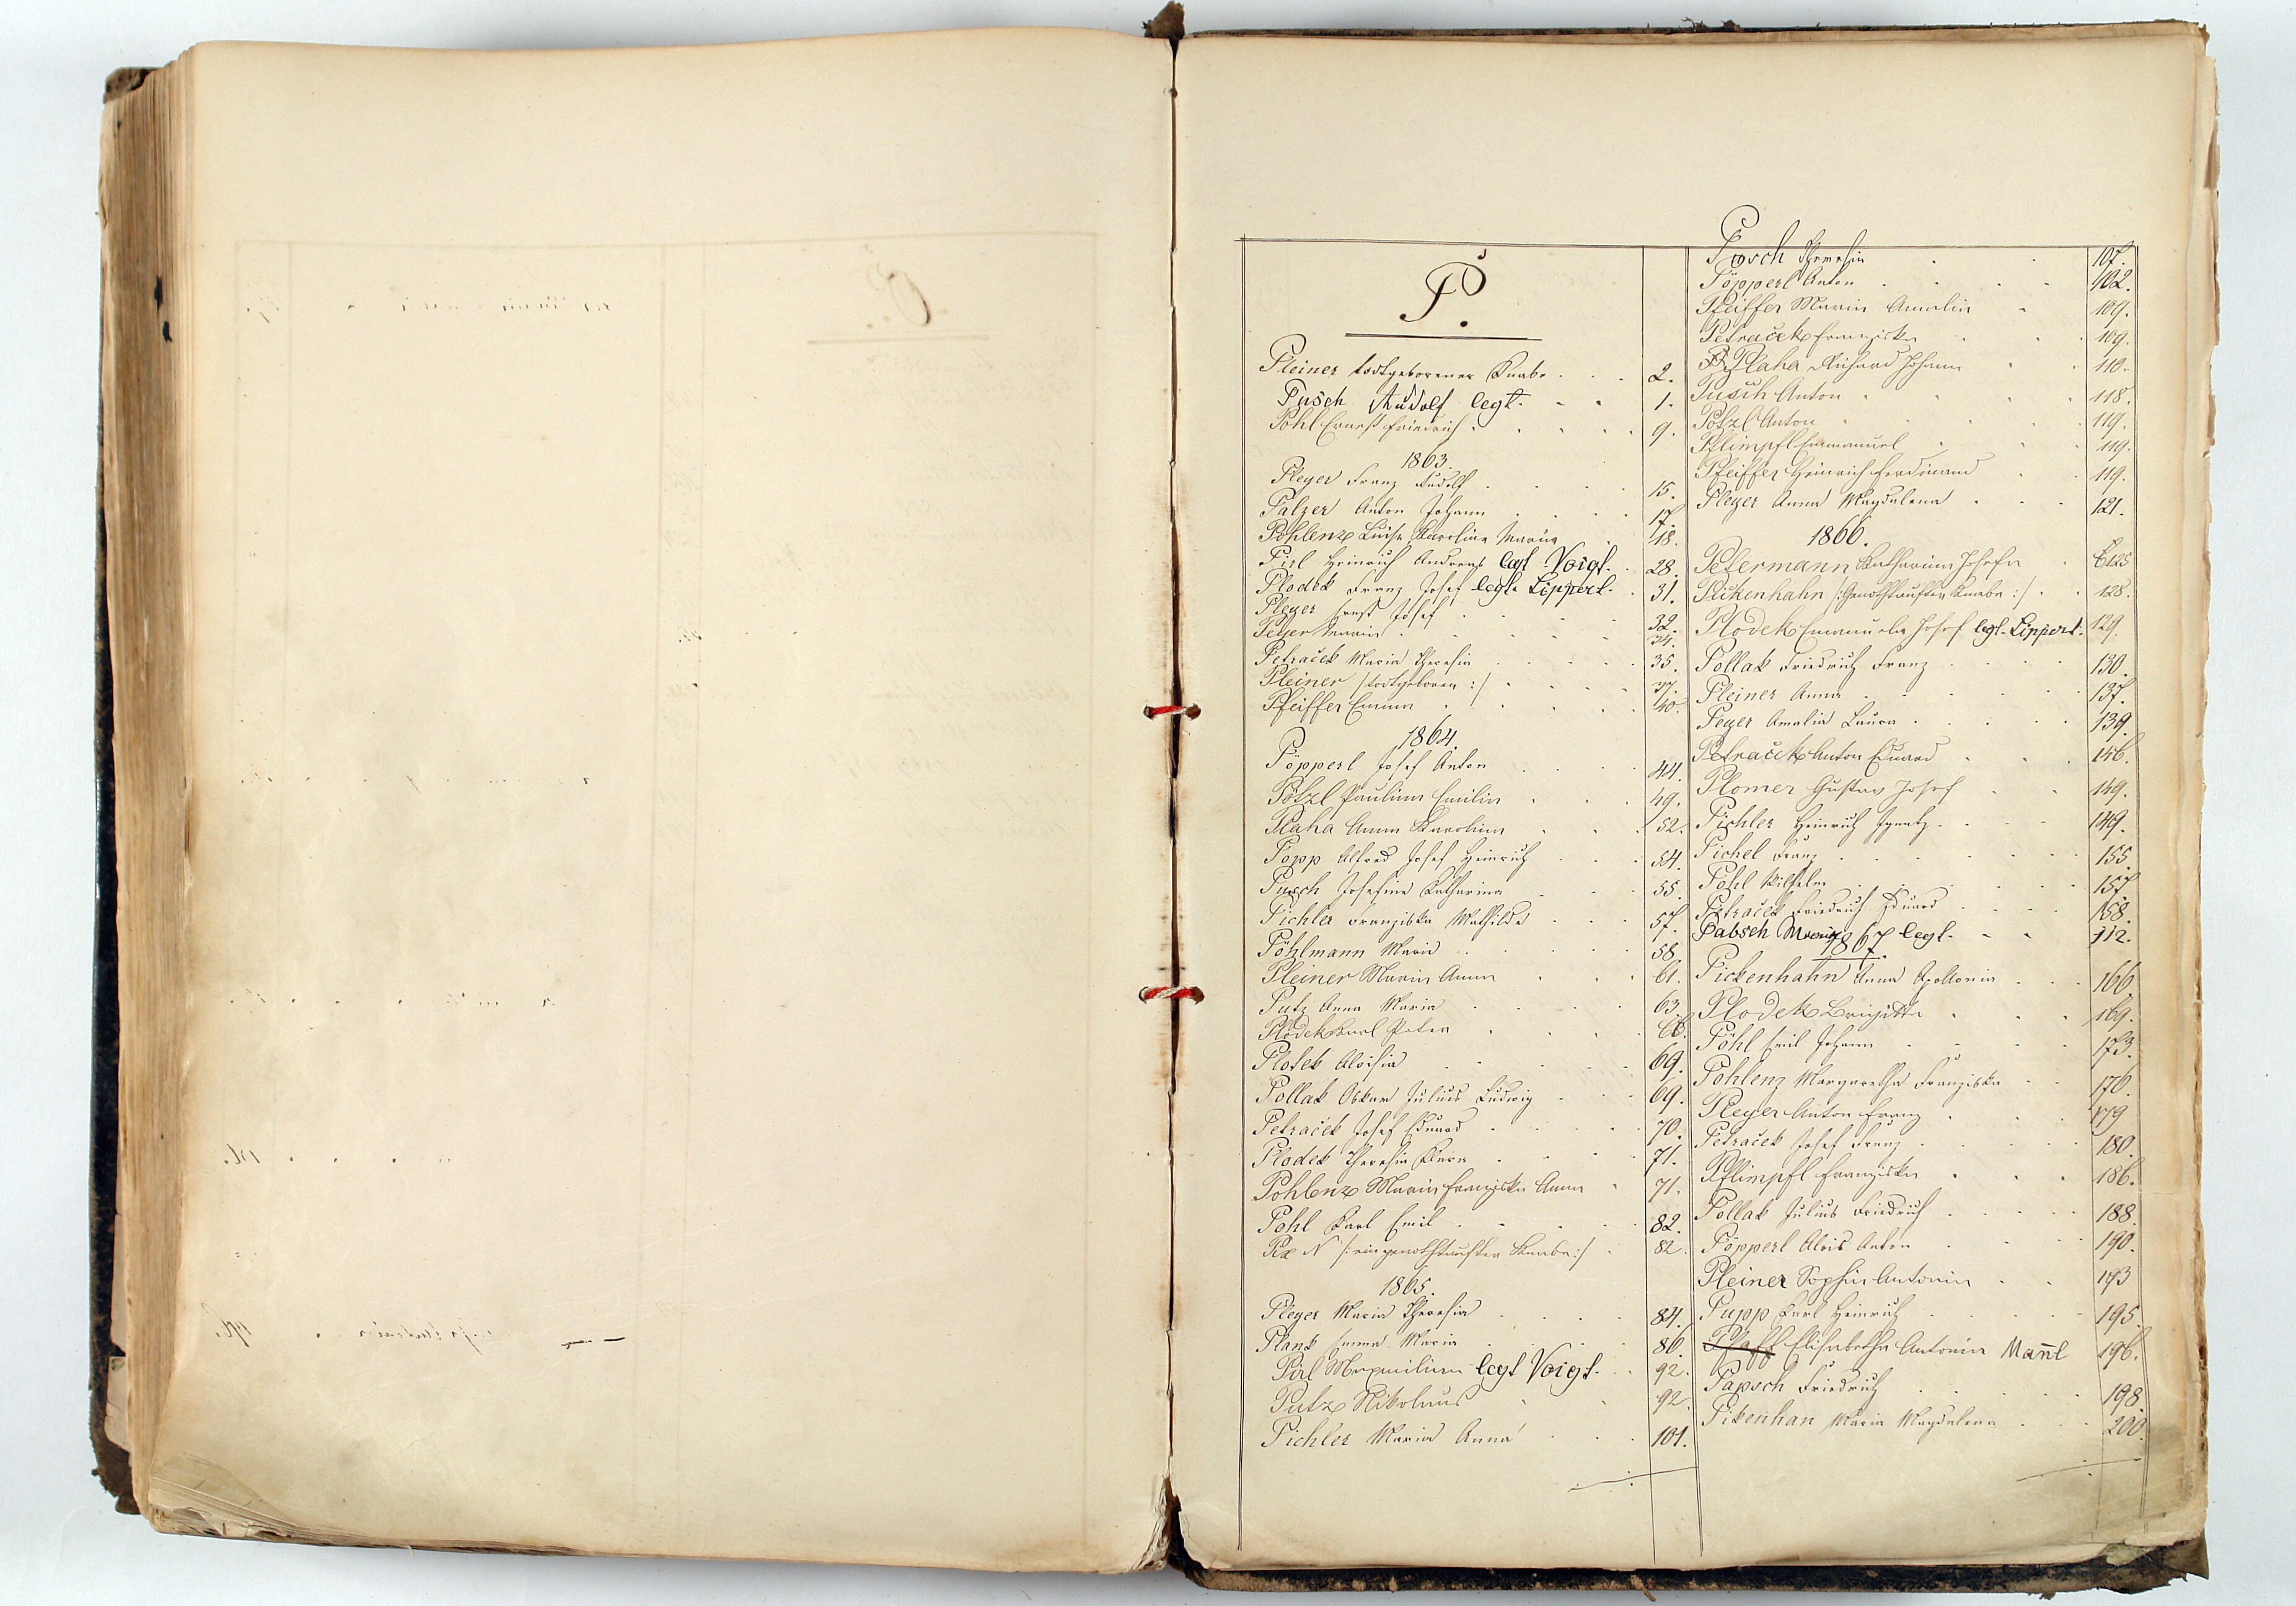 P.
Pleiner todtgeborener Knabe 2.
Pusch Rudolf legt. 1.
Pohl Ernest Friedrich 9.
1863.
Pleyer Franz Rudolf 15.
Palzer Anton Johann 17.
Pohlenz Luise Karoline Maria 18.
Pirl Heinrich Andreas legt Voigt. 28.
Plodek Franz Josef legt. Lippert. 31.
Pleyer Ernst Josef 32.
Peyer Maria 34.
Petraček Maria Theresia 35.
Pleiner /:todtgeboren:/ 37.
Pfeiffer Emma 40.
1864.
Pöpperl Josef Anton 44.
Pötzl Paulina Emilia 49.
Plaha Anna Karolina 52.
Popp Alfred Josef Heinrich 54.
Pusch Josefine Katharina 55.
Pichler Franziska Mathilde 57.
Pöhlmann Maria 58.
Pleiner Maria Anna 61.
Putz Anna Maria 63.
Plodek Karl Peter 66.
Plotek Aloisia 69.
Pollak Oskar Julius Ludwig 69.
Petraček Josef Eduard 70.
Plodek Theresia Klara 71.
Pohlenz Maria Franziska Anna 71.
Pohl Karl Emil 82.
Pix N /:ein genothtaufter Knabe:/ 82.
1865.
Pleyer Maria Theresia 84.
Plank Emma Maria 86.
Pirl Maximilian legt Voigt. 92.
Putz Nikolaus 92.
Pichler Maria Anna 101.
Posch Theresia 107.
Pöpperl Anton 102.
Pfeiffer Maria Amalia 109.
Petraček Franziska 109.
Plaha Richard Johann 110.
Pusch Anton 118.
Pötzl Anton 119.
Pflimpfl Emmanuel 119.
Pfeiffer Heinrich Ferdinand 119.
Pleyer Anna Magdalena 121.
1866.
Petermann Katharina Josefa 125
Pickenhahn /:Genothtaufter Knabe:/ 128.
Plodek Emanuela Josef legt. Lippert. 129.
Pollak Friedrich Franz 130.
Pleiner Anna 137.
Peyer Amalia Laura 139.
Petraček Anton Eduard 146.
Plomer Gustav Josef 149.
Pichler Heinrich Ignatz 149.
Pichel Franz 155.
Pohl Wilhelm 157.
Petraček Friedrich Eduard 158.
Pabsch Maria legt. 112.
1867.
Pickenhahn Anna Apollonia 166.
Plodek Brigitta 169.
Pöhl Emil Johann 173.
Pohlenz Margaretha Franziska 176.
Pleyer Anton Franz 179
Petraček Josef Franz 180.
Pflimpfl Franziska 186.
Pollak Julius Friedrich 188.
Pöpperl Alois Anton 190.
Pleiner Sophia Antonia 193
Pupp Karl Heinrich 195.
Pfaff Elisabetha Antonia Mañl 196.
Papsch Friedrich 198.
Pikenhan Maria Magdalena 200.